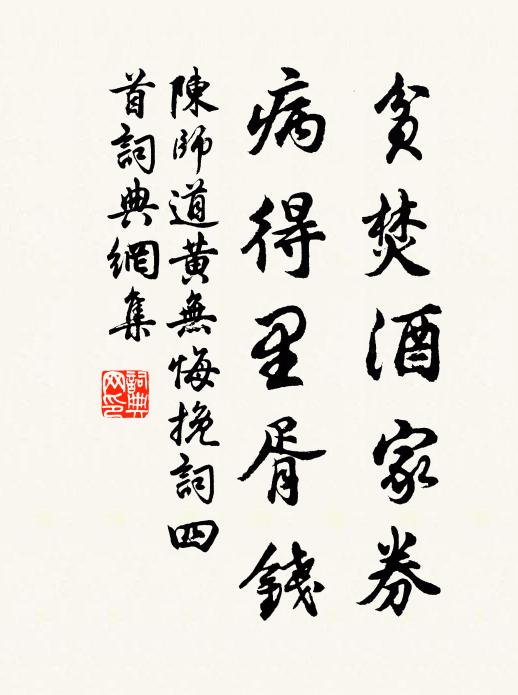 貧焚酒家券
病得里胥錢
陳師道黃無悔挽詞四
首詞典網集
詞典網印